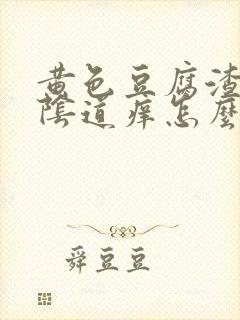 黄色豆腐渣
陰道痒怎麼
舜豆豆